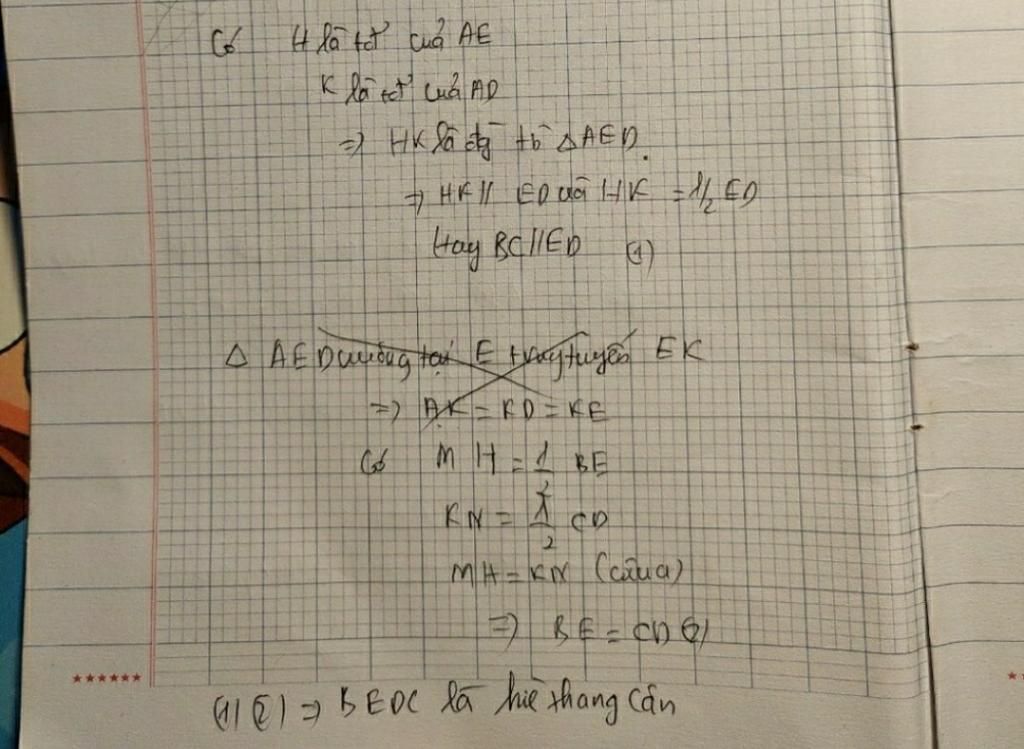 Có H là tđ của AE
K là tđ của AD
=> HK là đg tb △AED.
=> HK // ED và HK = 1/2 ED
Hay BC // ED (1)
△ AED vuông tại E trung tuyến EK
=> AK = KD = KE
Có MH = 1/2 BE
KN = 1/2 CD
MH = KN (câu a)
=> BE = CD (2)
(1) (2) => BEDC là hìe thang cân